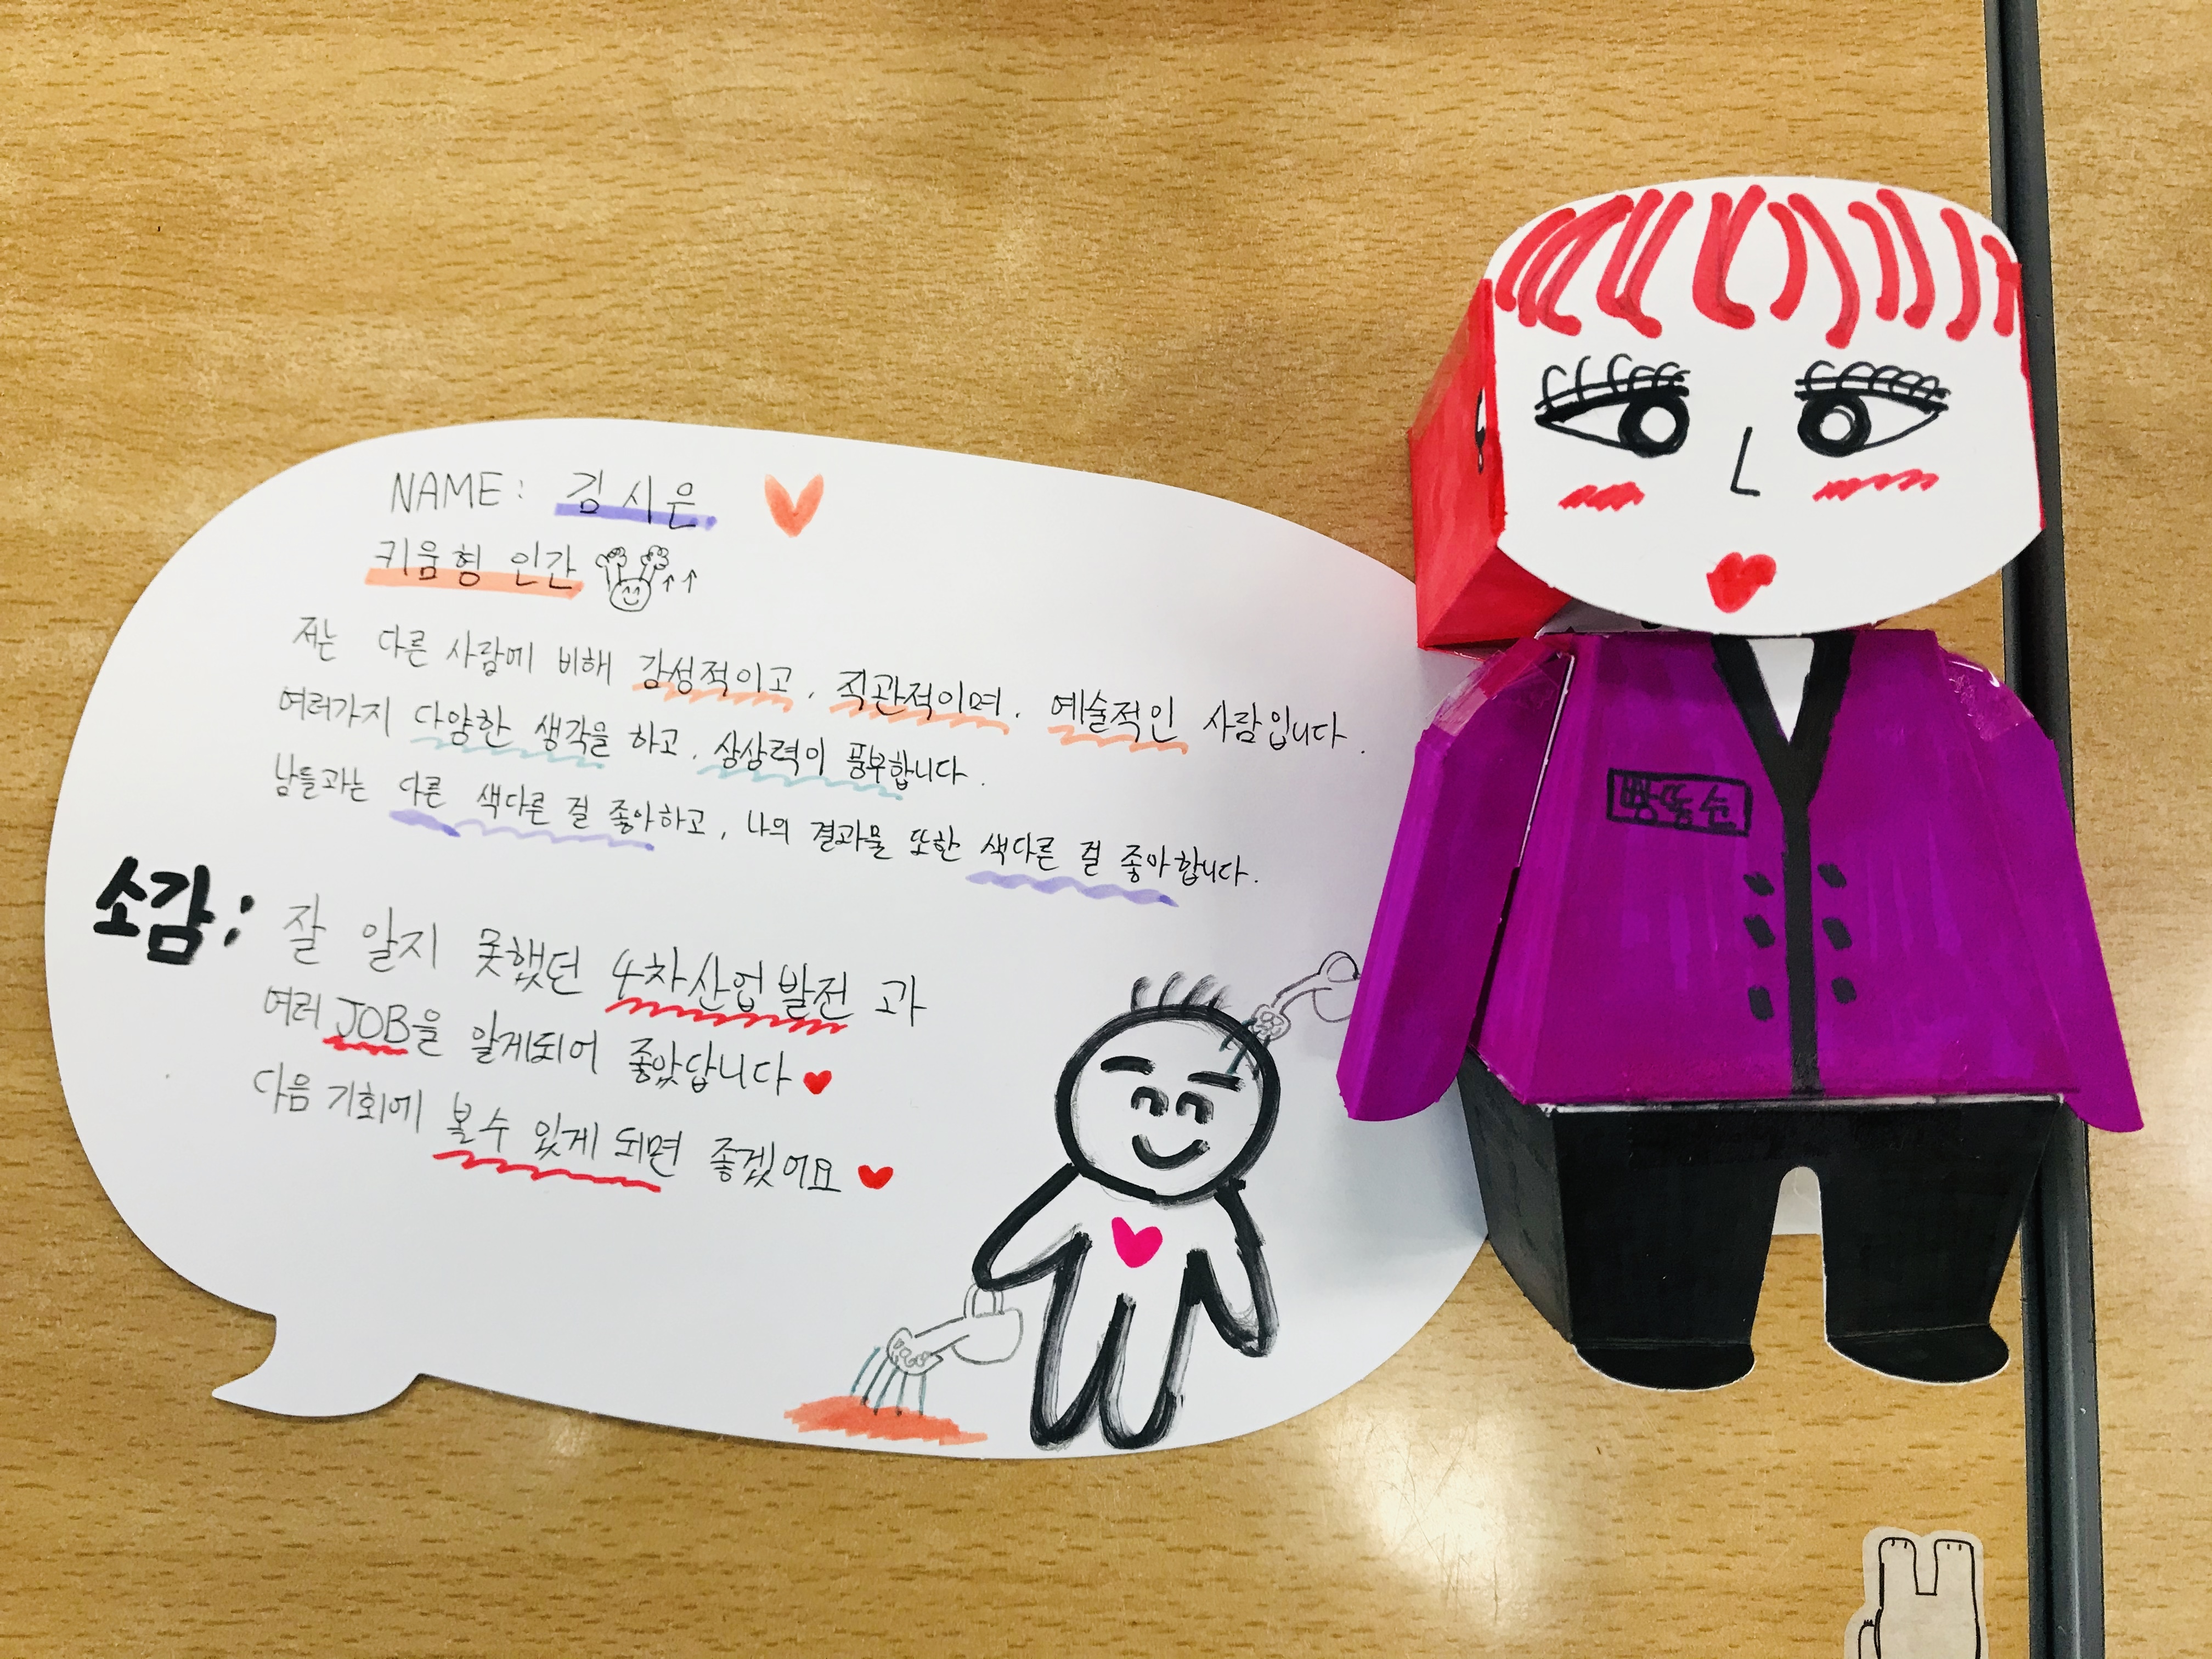 NAME: 김시은
키움형 인간
저는 다른 사람에 비해 감성적이고, 직관적이며, 예술적인 사람입니다.
여러가지 다양한 생각을 하고, 상상력이 풍부합니다.
남들과는 다른 색다른 걸 좋아하고, 나의 결과물 또한 색다른 걸 좋아합니다.
소감: 잘 알지 못했던 4차산업발전 과
여러 JOB을 알게되어 좋았답니다
다음 기회에 볼수 있게 되면 좋겠어요